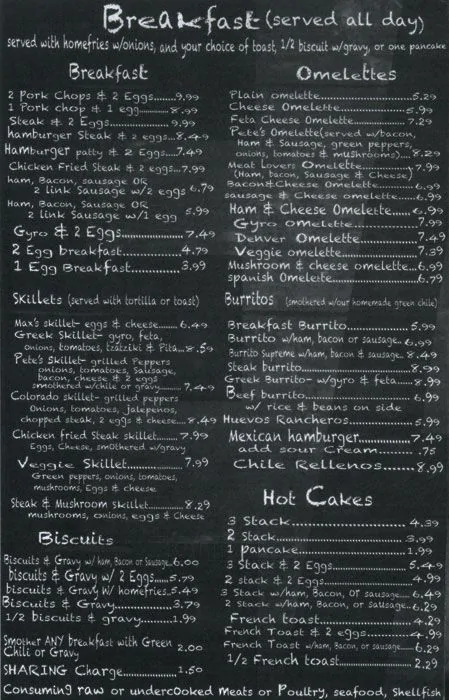 Breakfast (served all day)
served with homefries w/onions, and your choice of toast, 1/2 biscuit w/gravy, or one pancake
Breakfast
2 Pork Chops & 2 Eggs.......9.99
1 Pork chop & 1 egg...........8.99
Steak & 2 Eggs..................9.99
hamburger Steak & 2 eggs...8.49
Hamburger patty & 2 Eggs....7.49
Chicken Fried Steak & 2 Eggs...7.99
ham, Bacon, sausage OR
2 link Sausage w/2 eggs 6.79
Ham, Bacon, Sausage OR
2 link Sausage w/1 egg 5.99
Gyro & 2 Eggs..............7.49
2 Egg breakfast..............4.79
1 Egg Breakfast..............3.99
Skillets (served with tortilla or toast)
Max's skillet- eggs & cheese........6.49
Greek Skillet- gyro, feta,
onions, tomatoes, tzatziki & Pita...8.59
Pete's Skillet- grilled Peppers
onions, tomatoes, Sausage,
bacon, cheese & 2 eggs
smothered w/chile or gravy............7.49
Colorado skillet- grilled peppers
Onions, tomatoes, jalepenos,
chopped steak, 2 eggs & cheese...8.49
Chicken fried Steak skillet.......7.99
Eggs, Cheese, smothered w/gravy
Veggie Skillet................7.99
Green peppers, onions, tomatoes,
mushrooms, Eggs & cheese
Steak & Mushroom skillet.........8.29
mushrooms, onions, eggs & Cheese
Biscuits
Biscuits & Gravy w/ ham, Bacon or Sausage..6.00
biscuits & Gravy w/ 2 Eggs......5.79
biscuits & Gravy W/ homefries..5.49
Biscuits & Gravy..............3.79
1/2 biscuits & gravy............1.99
Smother ANY breakfast with Green
Chili or Gravy 2.00
SHARING Charge..............1.50
Omelettes
Plain omelette..............................5.29
Cheese Omelette..........................5.99
Feta Cheese Omelette..................7.29
Pete's Omelette(served w/bacon,
Ham & Sausage, green peppers,
onions, tomatoes & mushrooms)....8.29
Meat Lovers Omelette...............7.99
(Ham, bacon, Sausage & Cheese)
Bacon&Cheese Omelette...............6.99
sausage & Cheese omelette............6.99
Ham & Cheese Omelette......6.99
Gyro Omelette..................7.99
Denver Omelette...............7.49
Veggie omelette................7.39
Mushroom & cheese omelette...6.99
spanish Omelette..................6.79
Burritos (smothered w/our homemade green chile)
Breakfast Burrito..................5.99
Burrito w/ham, bacon or sausage..6.99
Burrito Supreme w/ham, bacon & sausage..8.49
Steak burrito.......................8.99
Greek Burrito- w/gyro & feta......8.99
Beef burrito.........................6.99
w/ rice & beans on side
Huevos Rancheros..................5.99
Mexican hamburger...............7.49
add sour Cream...........75
Chile Rellenos............8.99
Hot Cakes
3 Stack...........................4.39
2 Stack...........................3.99
1 pancake........................1.99
3 Stack & 2 Eggs..............5.49
2 stack & 2 Eggs..............4.99
3 Stack w/ham, Bacon, OR sausage...6.49
2 Stack w/ham, Bacon, or Sausage..6.29
French toast.....................4.29
French Toast & 2 eggs...........4.99
French Toast w/ham, Bacon, or sausage........6.29
1/2 French toast...............2.29
Consuming raw or undercooked meats or Poultry, seafood, Shellfish